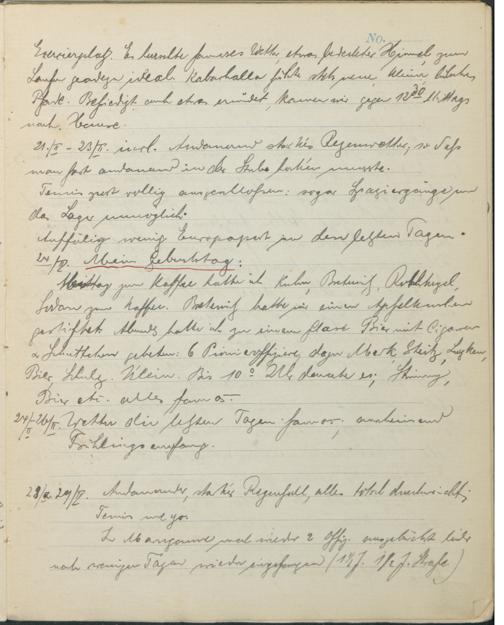 No.
Exerzierplatz. Es herrschte famoses Wetter, etwas bedeckter Himmel, zum
Laufen geradezu ideal. führte stets neue, kleine, hübsche
Pfade. Befriedigt, auch etwas ermüdet, kamen wir gegen 12³⁰ Mittags
nach Hause.
21./II – 23/II incl. Andauernd starkes Regenwetter, so daß
man fast andauernd in der Stube hocken musste.
Tennis völlig ausgeschlossen: sogar Spaziergänge um
das Lager unmöglich.
Auffällig wenig Europapost in den letzten Tagen.
24/II. Mein Geburtstag:
zum Kaffee hatte ich Kuhn,
zum Kaffee. hatte mir einen Apfelkuchen
gestiftet. Abends hatte ich zu einem Glase Bier mit Cigarren
& gebeten: 6 Pionieroffiziere, dazu
Schulz. Klein. Bis 10° Uhr dauerte es, Stimmung,
Bier etc. alles famos.
24/-26/II. Wetter die letzten Tagen famos, anscheinend
Frühlingsanfang.
28/& 29/II. Andauernder, starker Regenfall, alles total durchweicht;
Tennis
In sind wieder 2 Offiz. ausgerückt, leider
nach wenigen Tagen wieder eingefangen